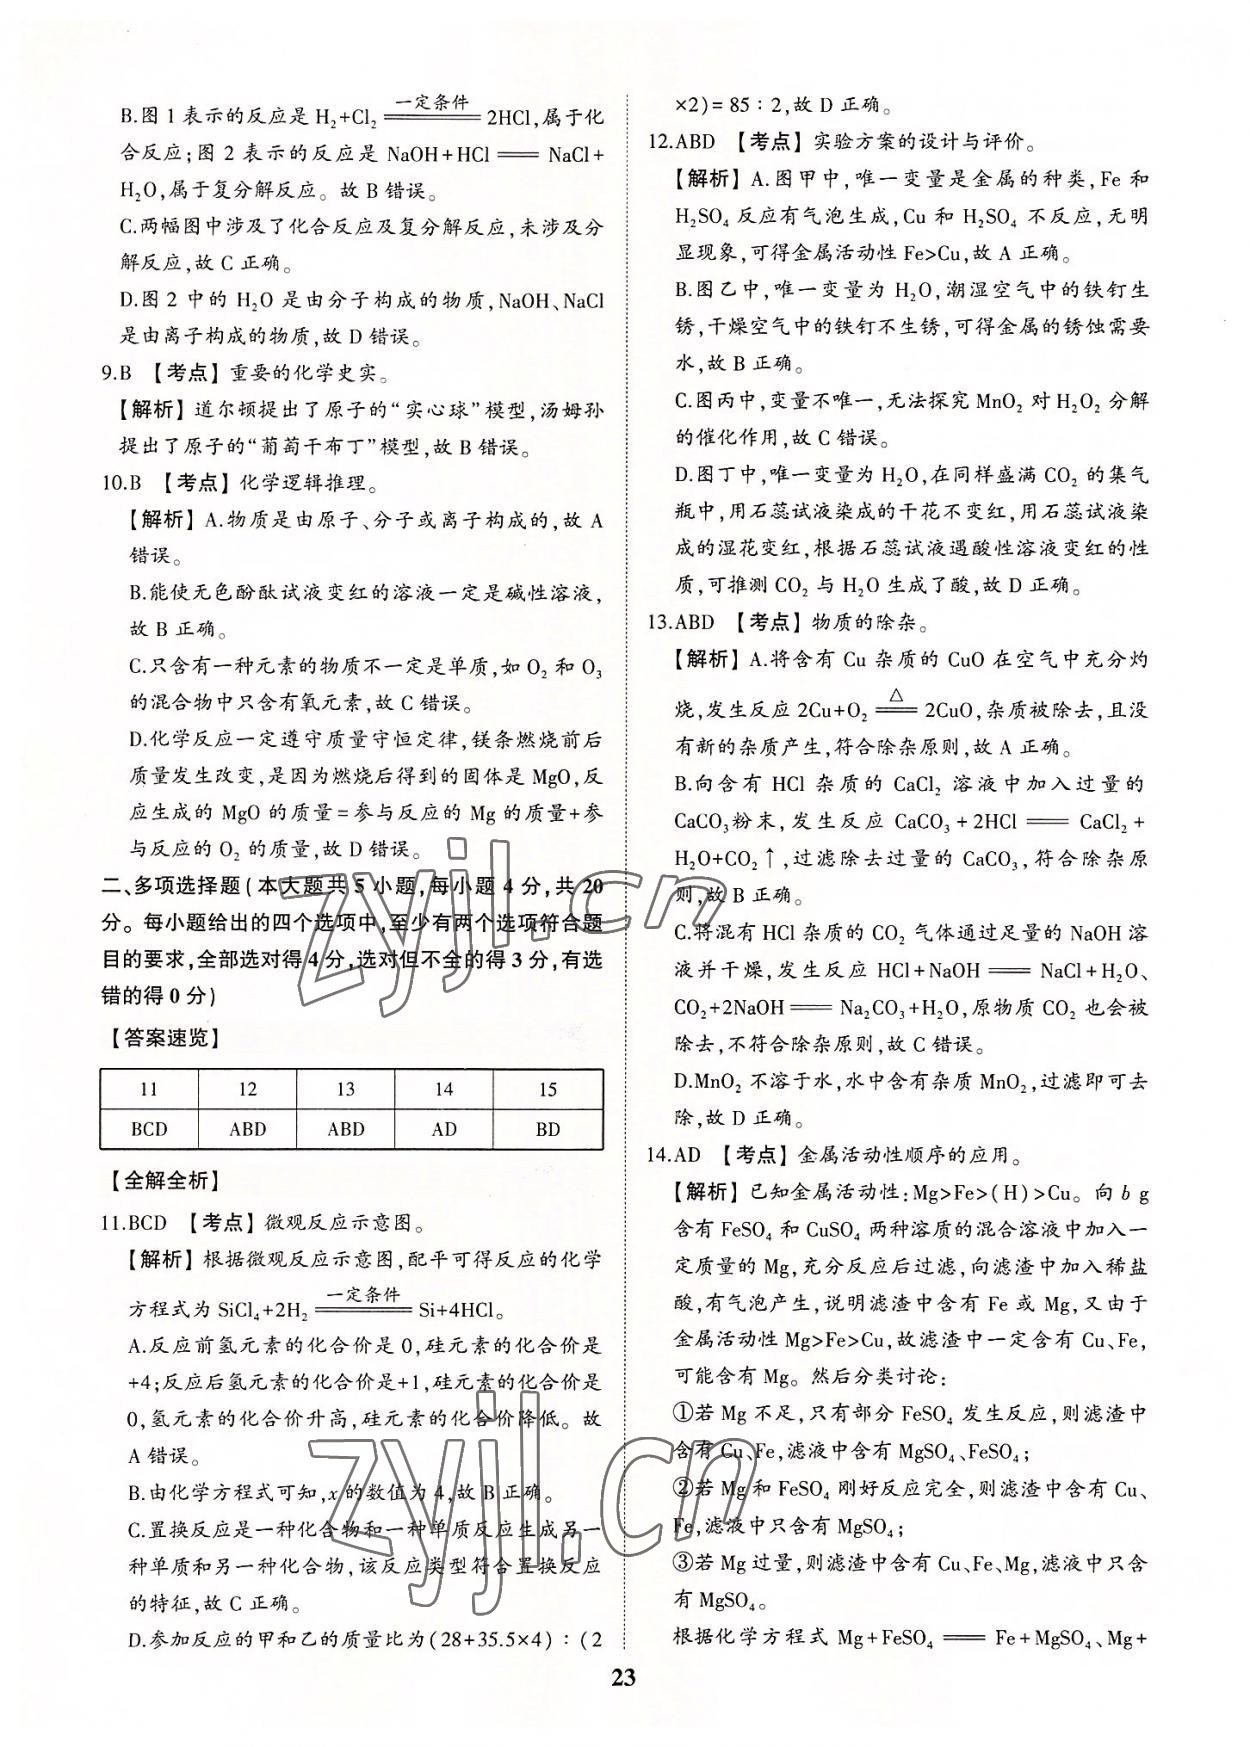 B.图1表示的反应是H₂+Cl₂ 一定条件═══ 2HCl,属于化
合反应;图2表示的反应是NaOH+HCl═══NaCl+
H₂O,属于复分解反应。故B错误。
C.两幅图中涉及了化合反应及复分解反应,未涉及分
解反应,故C正确。
D.图2中的H₂O是由分子构成的物质,NaOH、NaCl
是由离子构成的物质,故D错误。
9.B 【考点】重要的化学史实。
【解析】道尔顿提出了原子的“实心球”模型,汤姆孙
提出了原子的“葡萄干布丁”模型,故B错误。
10.B 【考点】化学逻辑推理。
【解析】A.物质是由原子、分子或离子构成的,故A
错误。
B.能使无色酚酞试液变红的溶液一定是碱性溶液,
故B正确。
C.只含有一种元素的物质不一定是单质,如O₂和O₃
的混合物中只含有氧元素,故C错误。
D.化学反应一定遵守质量守恒定律,镁条燃烧前后
质量发生改变,是因为燃烧后得到的固体是MgO,反
应生成的MgO的质量=参与反应的Mg的质量+参
与反应的O₂的质量,故D错误。
二、多项选择题(本大题共5小题,每小题4分,共20
分。每小题给出的四个选项中,至少有两个选项符合题
目的要求,全部选对得4分,选对但不全的得3分,有选
错的得0分)
【答案速览】
11 12 13 14 15
BCD ABD ABD AD BD
【全解全析】
11.BCD 【考点】微观反应示意图。
【解析】根据微观反应示意图,配平可得反应的化学
方程式为SiCl₄+2H₂ 一定条件═══ Si+4HCl。
A.反应前氢元素的化合价是0,硅元素的化合价是
+4;反应后氢元素的化合价是+1,硅元素的化合价是
0,氢元素的化合价升高,硅元素的化合价降低。故
A错误。
B.由化学方程式可知,x的数值为4,故B正确。
C.置换反应是一种化合物和一种单质反应生成另一
种单质和另一种化合物,该反应类型符合置换反应
的特征,故C正确。
D.参加反应的甲和乙的质量比为(28+35.5×4)∶(2
×2)=85∶2,故D正确。
12.ABD 【考点】实验方案的设计与评价。
【解析】A.图甲中,唯一变量是金属的种类,Fe和
H₂SO₄反应有气泡生成,Cu和H₂SO₄不反应,无明
显现象,可得金属活动性Fe>Cu,故A正确。
B.图乙中,唯一变量为H₂O,潮湿空气中的铁钉生
锈,干燥空气中的铁钉不生锈,可得金属的锈蚀需要
水,故B正确。
C.图丙中,变量不唯一,无法探究MnO₂对H₂O₂分解
的催化作用,故C错误。
D.图丁中,唯一变量为H₂O,在同样盛满CO₂的集气
瓶中,用石蕊试液染成的干花不变红,用石蕊试液染
成的湿花变红,根据石蕊试液遇酸性溶液变红的性
质,可推测CO₂与H₂O生成了酸,故D正确。
13.ABD 【考点】物质的除杂。
【解析】A.将含有Cu杂质的CuO在空气中充分灼
烧,发生反应2Cu+O₂ △═══ 2CuO,杂质被除去,且没
有新的杂质产生,符合除杂原则,故A正确。
B.向含有HCl杂质的CaCl₂溶液中加入过量的
CaCO₃粉末,发生反应CaCO₃+2HCl═══CaCl₂+
H₂O+CO₂↑,过滤除去过量的CaCO₃,符合除杂原
则,故B正确。
C.将混有HCl杂质的CO₂气体通过足量的NaOH溶
液并干燥,发生反应HCl+NaOH═══NaCl+H₂O、
CO₂+2NaOH═══Na₂CO₃+H₂O,原物质CO₂也会被
除去,不符合除杂原则,故C错误。
D.MnO₂不溶于水,水中含有杂质MnO₂,过滤即可去
除,故D正确。
14.AD 【考点】金属活动性顺序的应用。
【解析】已知金属活动性:Mg>Fe>(H)>Cu。向b g
含有FeSO₄和CuSO₄两种溶质的混合溶液中加入一
定质量的Mg,充分反应后过滤,向滤渣中加入稀盐
酸,有气泡产生,说明滤渣中含有Fe或Mg,又由于
金属活动性Mg>Fe>Cu,故滤渣中一定含有Cu、Fe,
可能含有Mg。然后分类讨论:
①若Mg不足,只有部分FeSO₄发生反应,则滤渣中
含有Cu、Fe,滤液中含有MgSO₄、FeSO₄;
②若Mg和FeSO₄刚好反应完全,则滤渣中含有Cu、
Fe,滤液中只含有MgSO₄;
③若Mg过量,则滤渣中含有Cu、Fe、Mg,滤液中只含
有MgSO₄。
根据化学方程式Mg+FeSO₄═══Fe+MgSO₄、Mg+
23
zyjl.cn
zyjl.cn